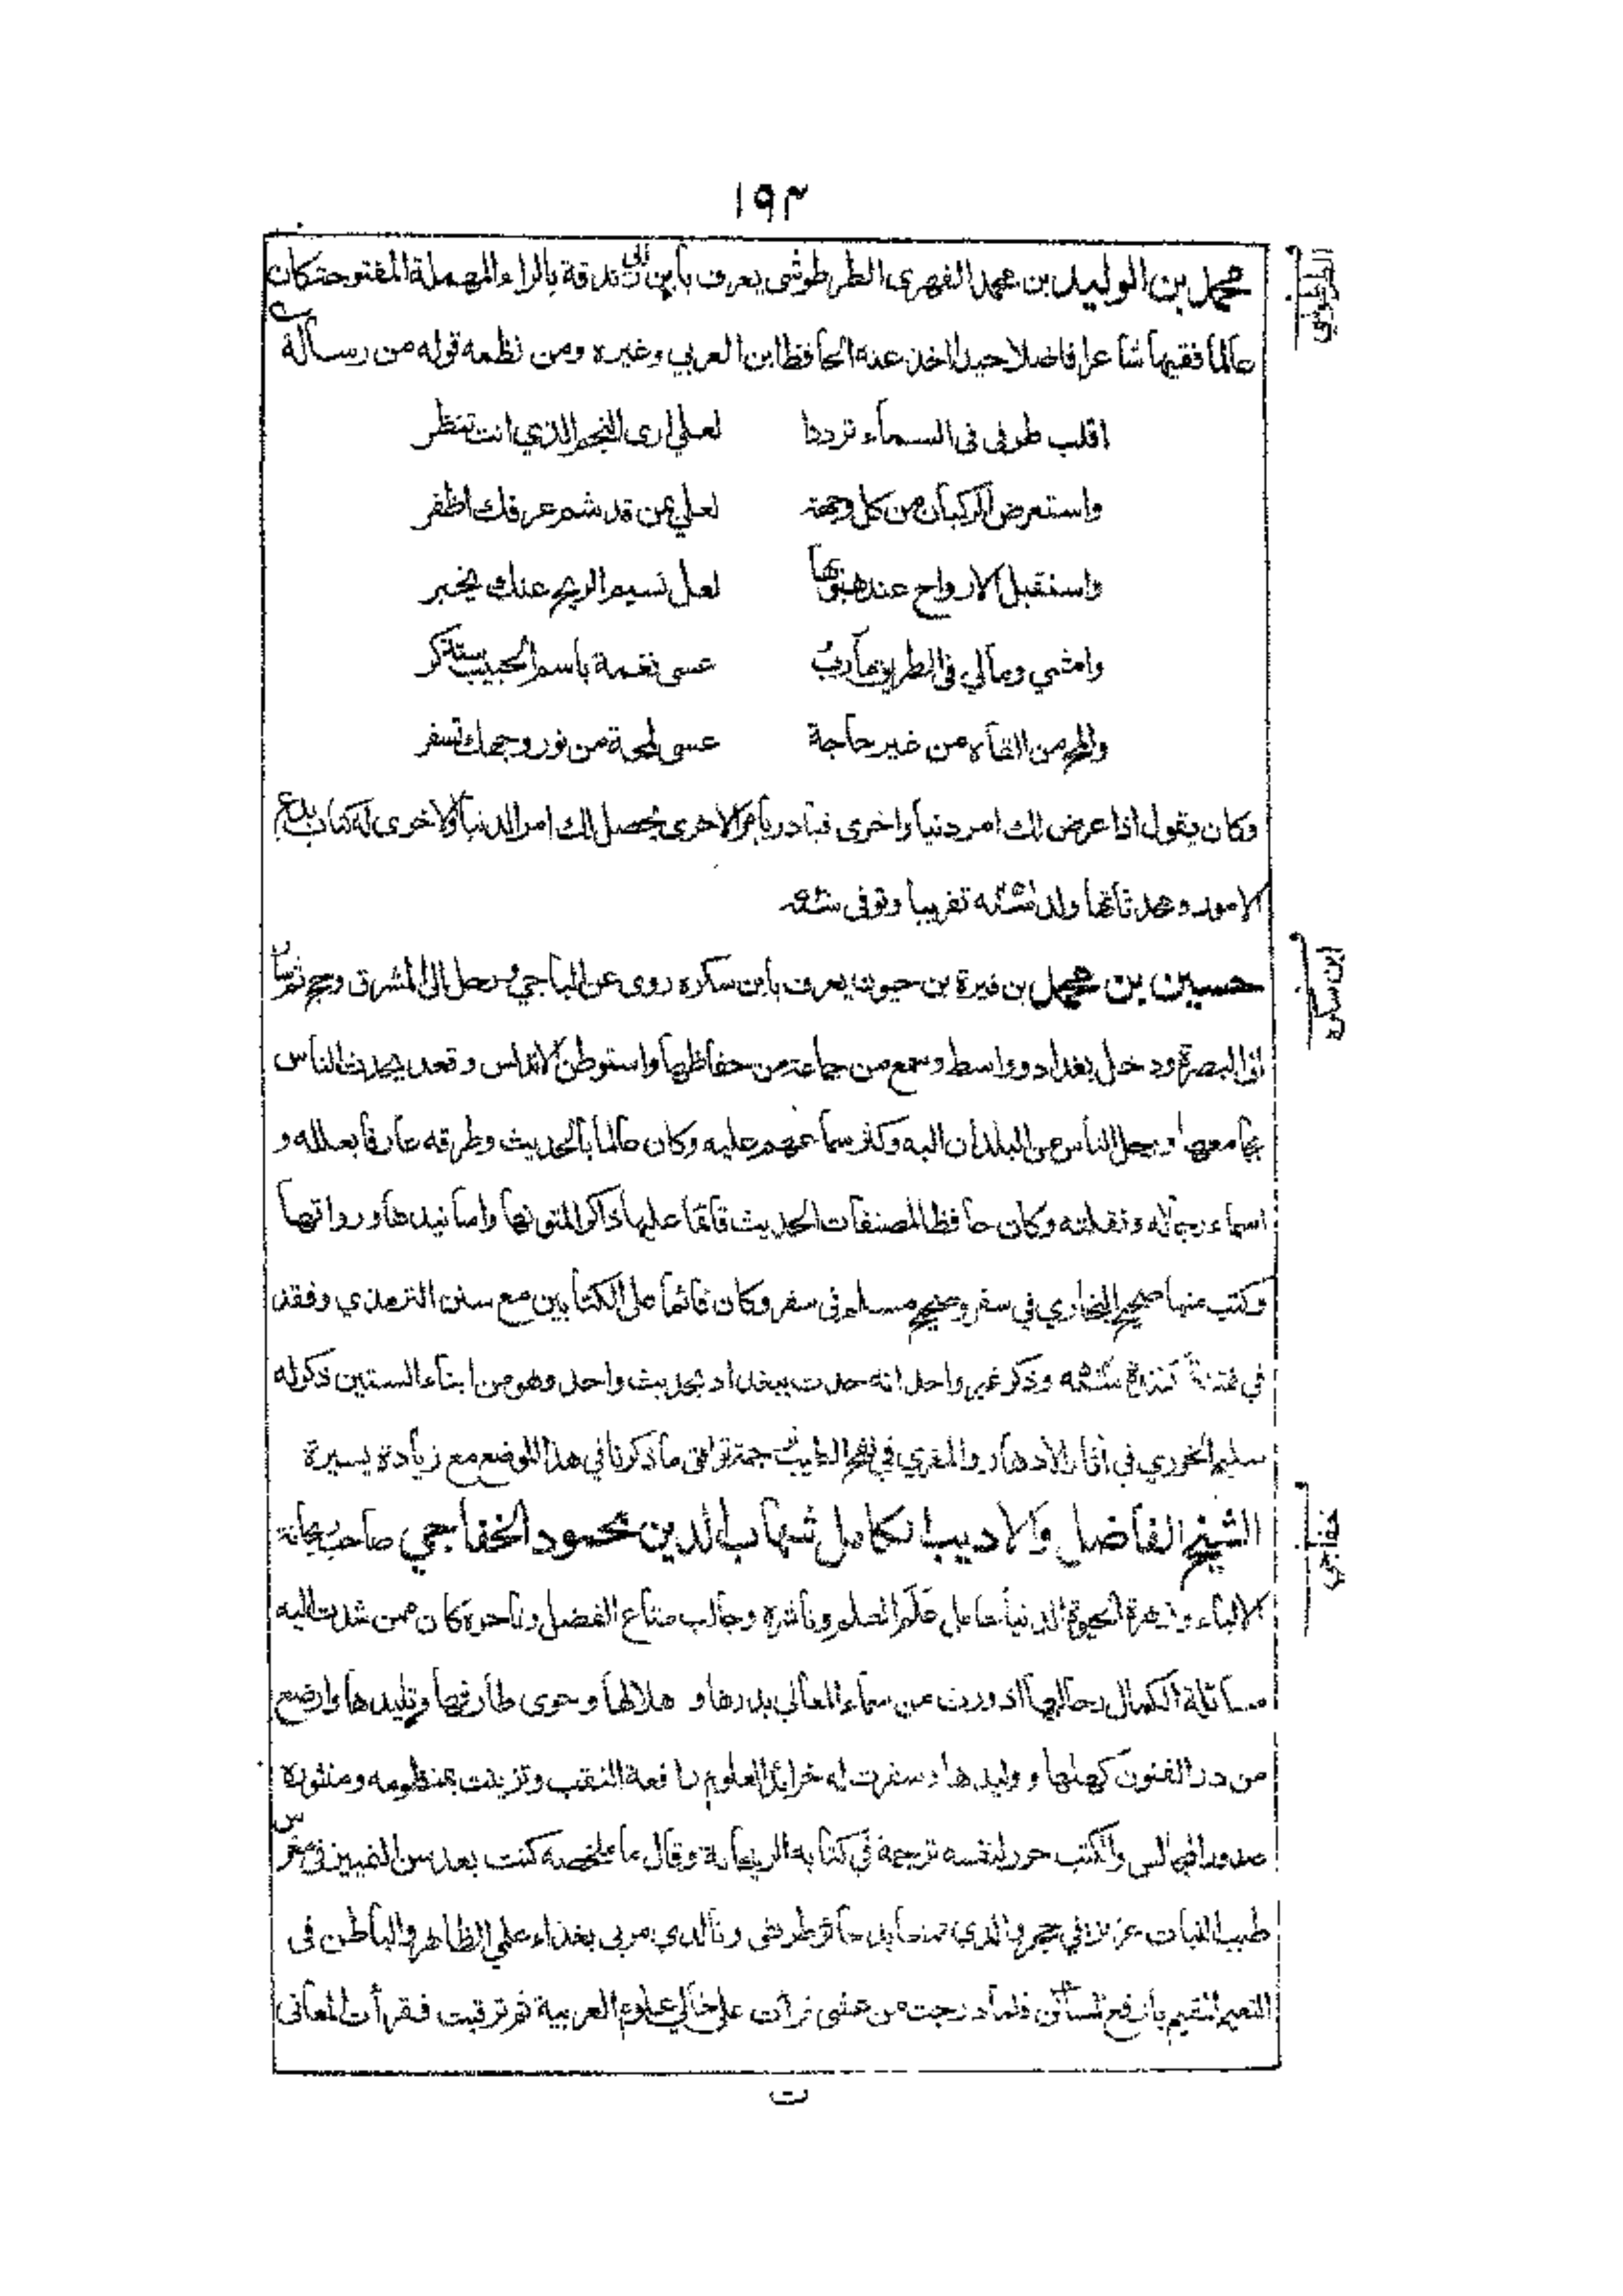 ١٩٣
محمد بن الوليد بن محمد الفهرى الطرطوشى يعرف بابن ابى رندقة بالراء المهملة المفتوحة كان
عالما فقيها شاعرا فاضلا جيدا اخذ عنه الحافظ ابن العربي وغيره ومن نظمه قوله من رسالة
اقلب طرفى فى السماء ترددا لعلي ارى النجم الذي انت تنظر
واستعرض الركبان من كل وجهة لعلي بمن قد شم عرفك اظفر
واستقبل الارواح عند هبوبها لعل نسيم الريح عنك يخبر
وامشي ومالي فى الطريق مآرب عسى نغمة باسم الحبيب ستذكر
والمح من القاه من غير حاجة عسى لمحة من نور وجهك تسفر
وكان يقول اذا عرض لك امر دنيا واخرى فبادر بامر الاخرى يحصل لك امر الدنيا والاخرى له كتاب بدع
الامور ومحدثاتها ولد تقريبا وتوفى
حسين بن محمد بن فيرة بن حيون يعرف بابن سكره روى عن الباجي ورحل الى المشرق وحج ثم سار
الى البصرة ودخل بغداد وواسط وسمع من جماعة من حفاظها واستوطن الاندلس وقعد يحدث الناس
بجامعها ورحل الناس من البلدان اليه وكثر سماعهم عليه وكان عالما بالحديث وطرقه عارفا بعلله و
اسماء رجاله ونقلته وكان حافظا لمصنفات الحديث قائما عليها ذاكرا لمتونها واسانيدها ورواتها
وكتب منها صحيح البخاري في سفر وصحيح مسلم فى سفر وكان قائما على الكتابين مع سنن الترمذي وفقد
في وذكر غير واحد انه حدث ببغداد بحديث واحد وهو من ابناء الستين ذكر له
سليم الخوري في آثار الادهار والمقري في نفح الطيب ترجمة توافق ما ذكرنا في هذا الموضع مع زيادة يسيرة
الشيخ الفاضل والاديب الكامل شهاب الدين محمود الخفاجي صاحب ريحانة
الالباء وزهرة الحيوة الدنيا حامل علم العلم وناشره وجالب متاع الفضل وتاجره كان ممن شدت اليه
الكمال رحالها اذ ورث من سماء المعالي بدرها و هلالها وحوى طارفها وتليدها وارضع
من در الفنون كهلها ووليدها وسفرت له خرائد العلوم رافعة النقب وتزينت بمنظومه ومنثوره
صدور المجالس والكتب حرر لنفسه ترجمة في كتابه الريحانة وقال ما ملخصه كنت بعد سن التمييز فى مغرس
طيب النبات عزيزا في حجر والدي ممتعا بذخائر طريفى وتالدي مربى بغذاء علي الظاهر والباطن فى
النعيم المقيم بارفع المساكن فلما درجت من عشى قرأت على خالي علوم العربية ثم ترقيت فقرأت المعانى
ت
الطرطوشي
ابن سكره
خفاجي